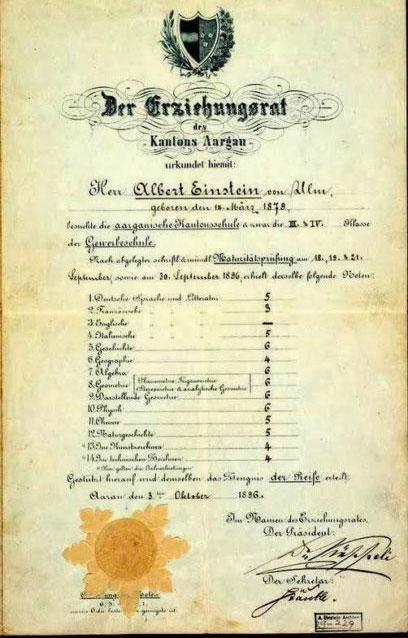 Der Erziehungsrat
des
Kantons Aargau
urkundet hiemit:
Herr Albert Einstein von Ulm,
geboren den 14. März 1879,
besuchte die aargauische Kantonsschule & zwar die III. & IV. Klasse
der Gewerbeschule.
Nach abgelegter schriftl. & mündl. Maturitätsprüfung am 18., 19. & 21.
September, sowie am 30. September 1896, erhielt derselbe folgende Noten:
1. Deutsche Sprache und Litteratur 5
2. Französische 3
3. Englische —
4. Italienische 5
5. Geschichte 6
6. Geographie 4
7. Algebra 6
8. Geometrie Planimetrie, Trigonometrie 6
Stereometrie & analytische Geometrie
9. Darstellende Geometrie 6
10. Physik 6
11. Chemie 5
12. Naturgeschichte 5
*13. Im Kunstzeichnen 4
*14. Im technischen Zeichnen 4
* Hier gelten die Jahresleistungen
Gestützt hierauf wird demselben das Zeugnis der Reife erteilt.
Aarau den 3ten Oktober 1896.
Im Namen des Erziehungsrates,
Der Präsident:
Der Sekretär:
A. Einstein Archive